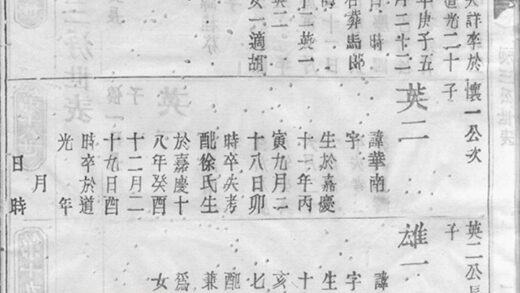 詳卒於
道光二十
年庚子五
月二十二
日時
葬馬郎
二英一
英二
女一適胡
懷一公次
子
英二
諱華南
字
生於嘉慶
十一年丙
寅九月二
十八日卯
時卒失考
配徐氏生
於嘉慶十
八年癸酉
十二月二
十九日酉
時卒於道
光 年
月
日時
英二公長
子
雄一
諱
字
生
十
亥
七
配
兼
為
女